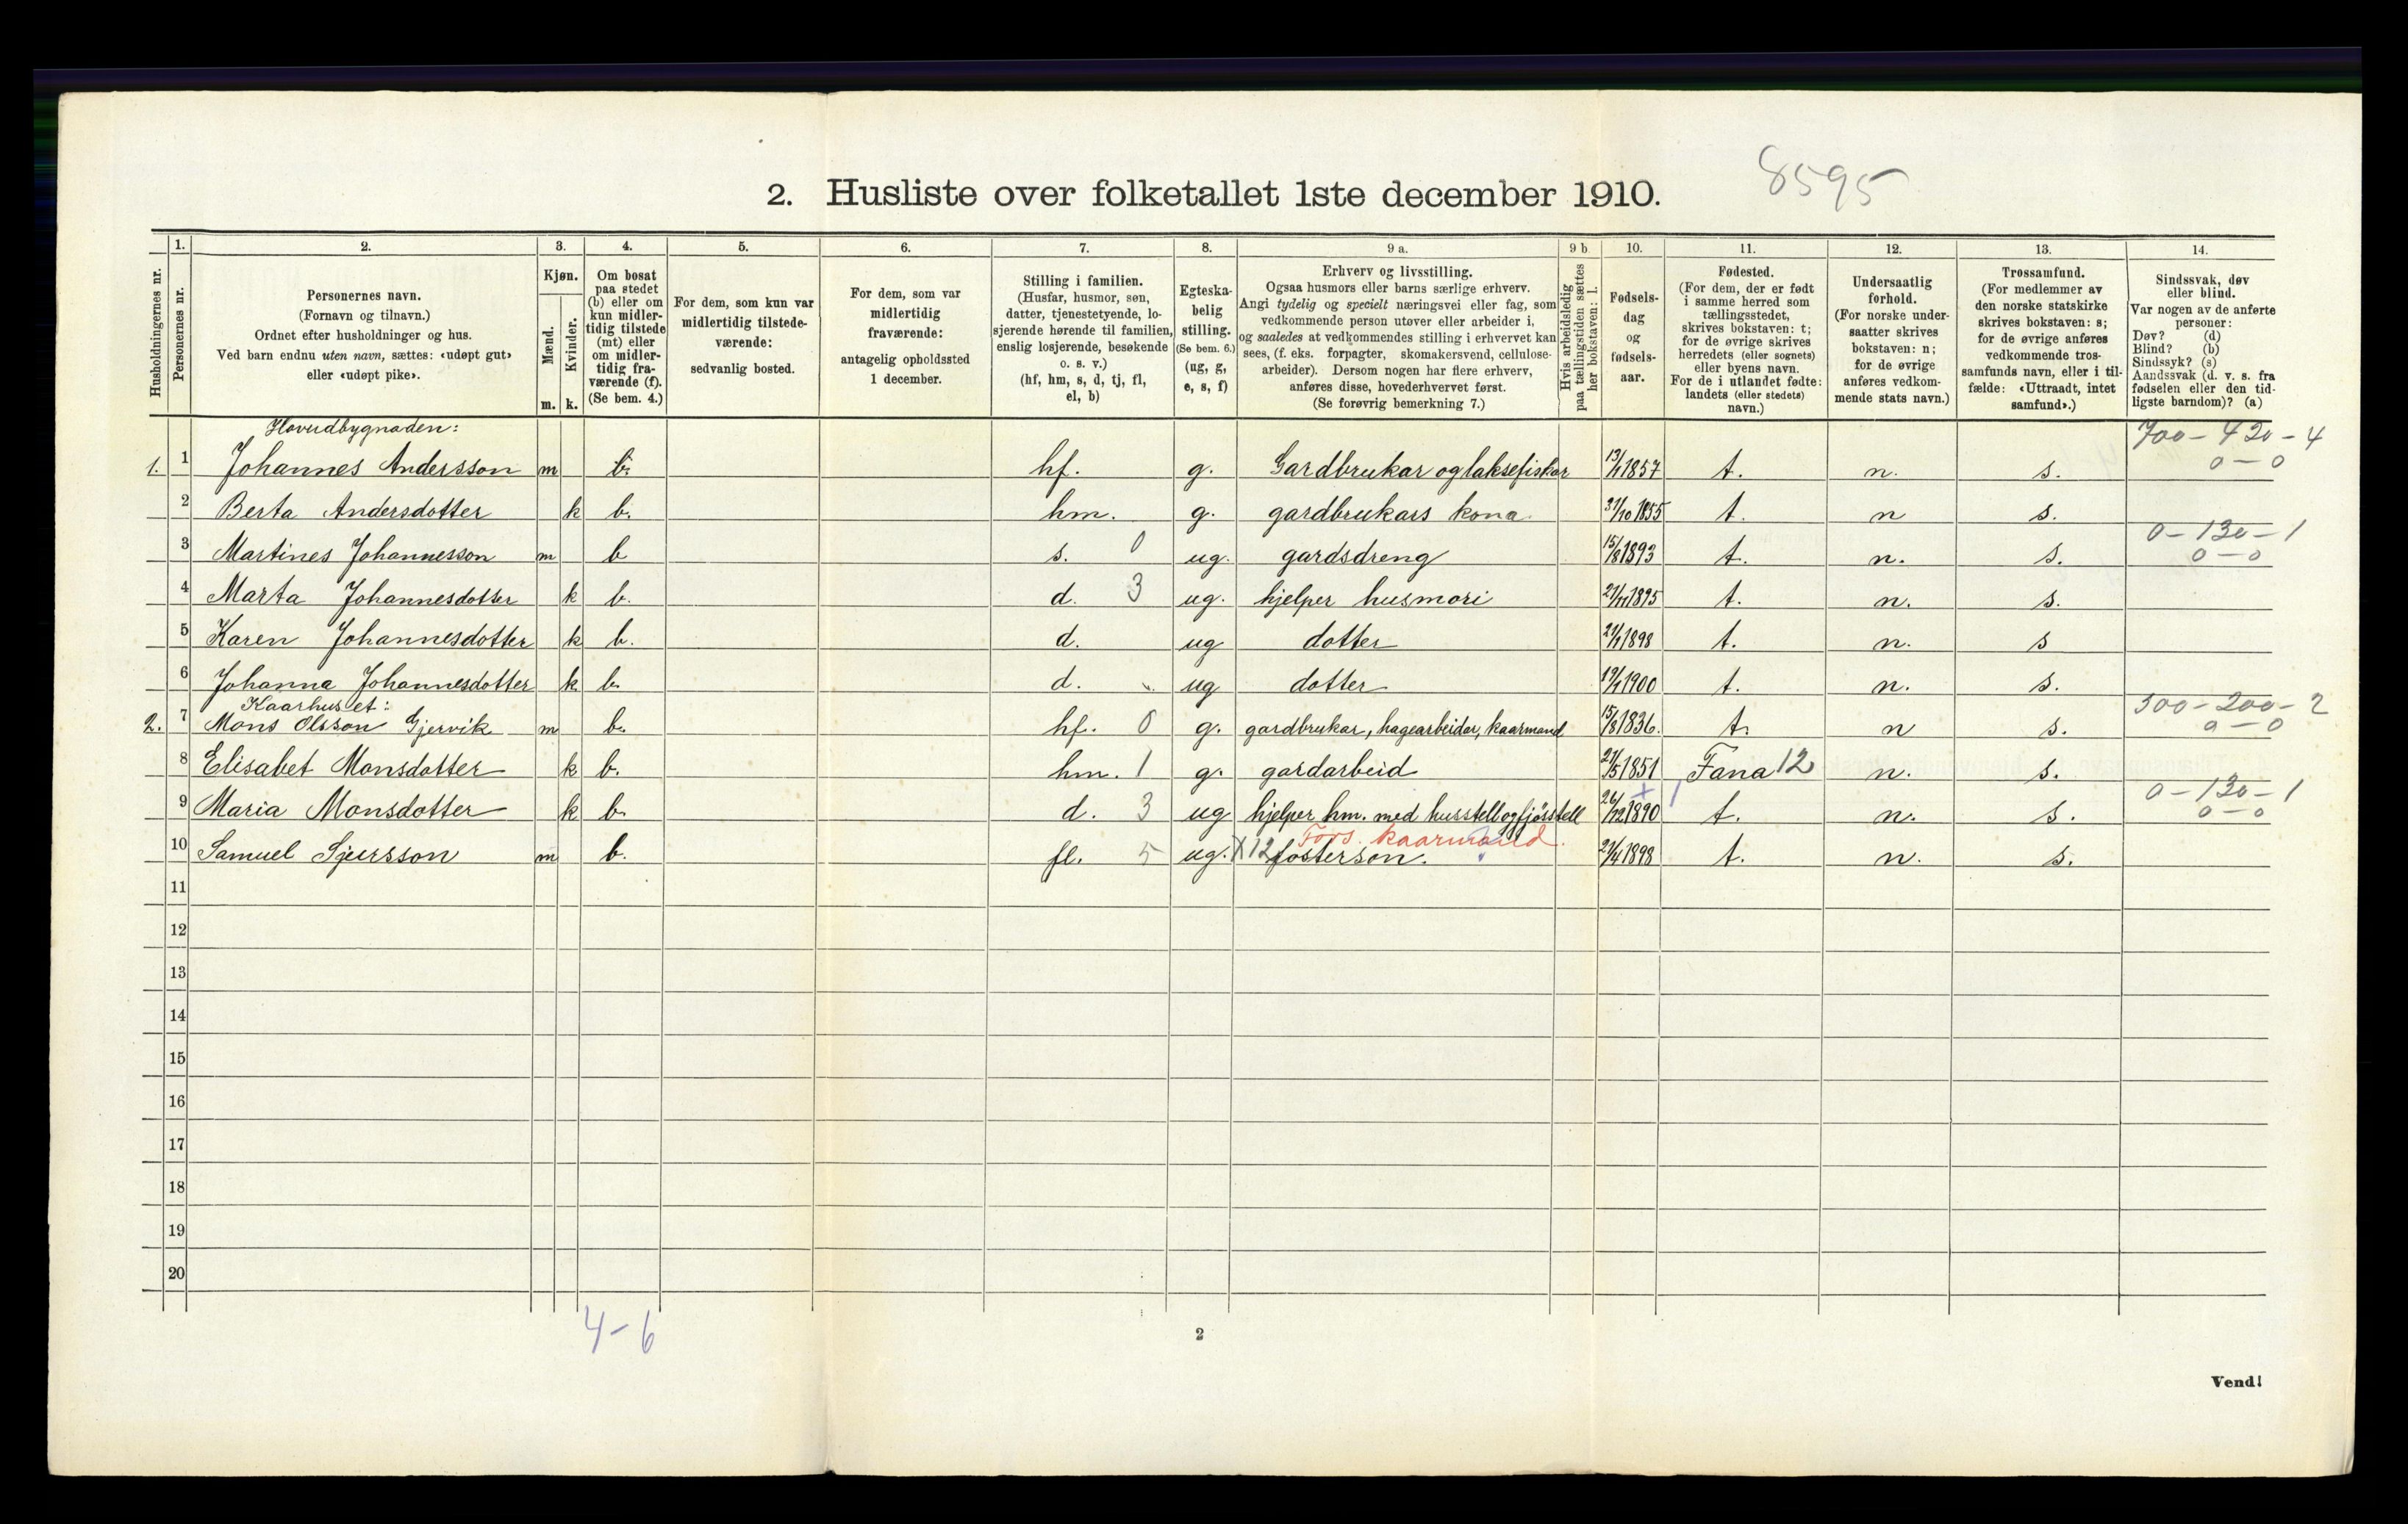 2. Husliste over folketallet 1ste december 1910.
8595
Husholdningernes nr.
1.
Personernes nr.
2.
Personernes navn.
(Fornavn og tilnavn.)
Ordnet efter husholdninger og hus.
Ved barn endnu uten navn, sættes: «udøpt gut»
eller «udøpt pike».
3.
Kjøn.
Mænd.
Kvinder.
m. k.
4.
Om bosat
paa stedet
(b) eller om
kun midler-
tidig tilstede
(mt) eller
om midler-
tidig fra-
værende (f).
(Se bem. 4.)
5.
For dem, som kun var
midlertidig tilstede-
værende:
sedvanlig bosted.
6.
For dem, som var
midlertidig
fraværende:
antagelig opholdssted
1 december.
7.
Stilling i familien.
(Husfar, husmor, søn,
datter, tjenestetyende, lo-
sjerende hørende til familien,
enslig losjerende, besøkende
o. s. v.)
(hf, hm, s, d, tj, fl,
el, b)
8.
Egteska-
belig
stilling.
(Se bem. 6.)
(ug, g,
e, s, f)
9 a.
Erhverv og livsstilling.
Ogsaa husmors eller barns særlige erhverv.
Angi tydelig og specielt næringsvei eller fag, som
vedkommende person utøver eller arbeider i,
og saaledes at vedkommendes stilling i erhvervet kan
sees, (f. eks. forpagter, skomakersvend, cellulose-
arbeider). Dersom nogen har flere erhverv,
anføres disse, hovederhvervet først.
(Se forøvrig bemerkning 7.)
9 b
Hvis arbeidsledig
paa tællingstiden sættes
her bokstaven: l.
10.
Fødsels-
dag
og
fødsels-
aar.
11.
Fødested.
(For dem, der er født
i samme herred som
tællingsstedet,
skrives bokstaven: t;
for de øvrige skrives
herredets (eller sognets)
eller byens navn.
For de i utlandet fødte:
landets (eller stedets)
navn.)
12.
Undersaatlig
forhold.
(For norske under-
saatter skrives
bokstaven: n;
for de øvrige
anføres vedkom-
mende stats navn.)
13.
Trossamfund.
(For medlemmer av
den norske statskirke
skrives bokstaven: s;
for de øvrige anføres
vedkommende tros-
samfunds navn, eller i til-
fælde: «Uttraadt, intet
samfund».)
14.
Sindssvak, døv
eller blind.
Var nogen av de anførte
personer:
Døv? (d)
Blind? (b)
Sindssyk? (s)
Aandssvak (d. v. s. fra
fødselen eller den tid-
ligste barndom)? (a)
Hovudbygnaden: 700-420-4
1. 1 Johannes Andersson m b. hf. g. Gardbrukar og laksefiskar 13/1 1857 t. n. s. 0-0
2 Berta Andersdotter k b. hm. g. gardbrukars kona 31/10 1855 t. n s.
0-130-1
3 Martines Johannesson m b s. 0 ug. gardsdreng 15/8 1893 t. n. s. 0-0
4 Marta Johannesdotter k b. d. 3 ug. hjelper husmori 21/11 1895 t. n. s.
5 Karen Johannesdotter k b. d. ug dotter 21/1 1898 t. n. s
6 Johanna Johannesdotter k b. d. ug dotter 19/1 1900 t. n. s.
Kaarhuset: 300-200-2
2. 7 Mons Olsson Gjervik m b. hf. 0 g. gardbrukar, hagearbeidar, kaarmand 15/8 1836. t. n s. 0-0
8 Elisabet Monsdotter k b. hm. 1 g. gardarbeid 27/5 1851 Fana 12 n. s.
0-130-1
9 Maria Monsdotter k b. d. 3 ug hjelper hm. med husstell og fjösstell 26/12 1890 t. n. s. 0-0
Fors. kaarmand.
10 Samuel Sjursson m b. fl. 5 ug. X12 fosterson. 21/4 1898 t. n. s.
11
12
13
14
15
16
17
18
19
20
4-6
2
Vend!